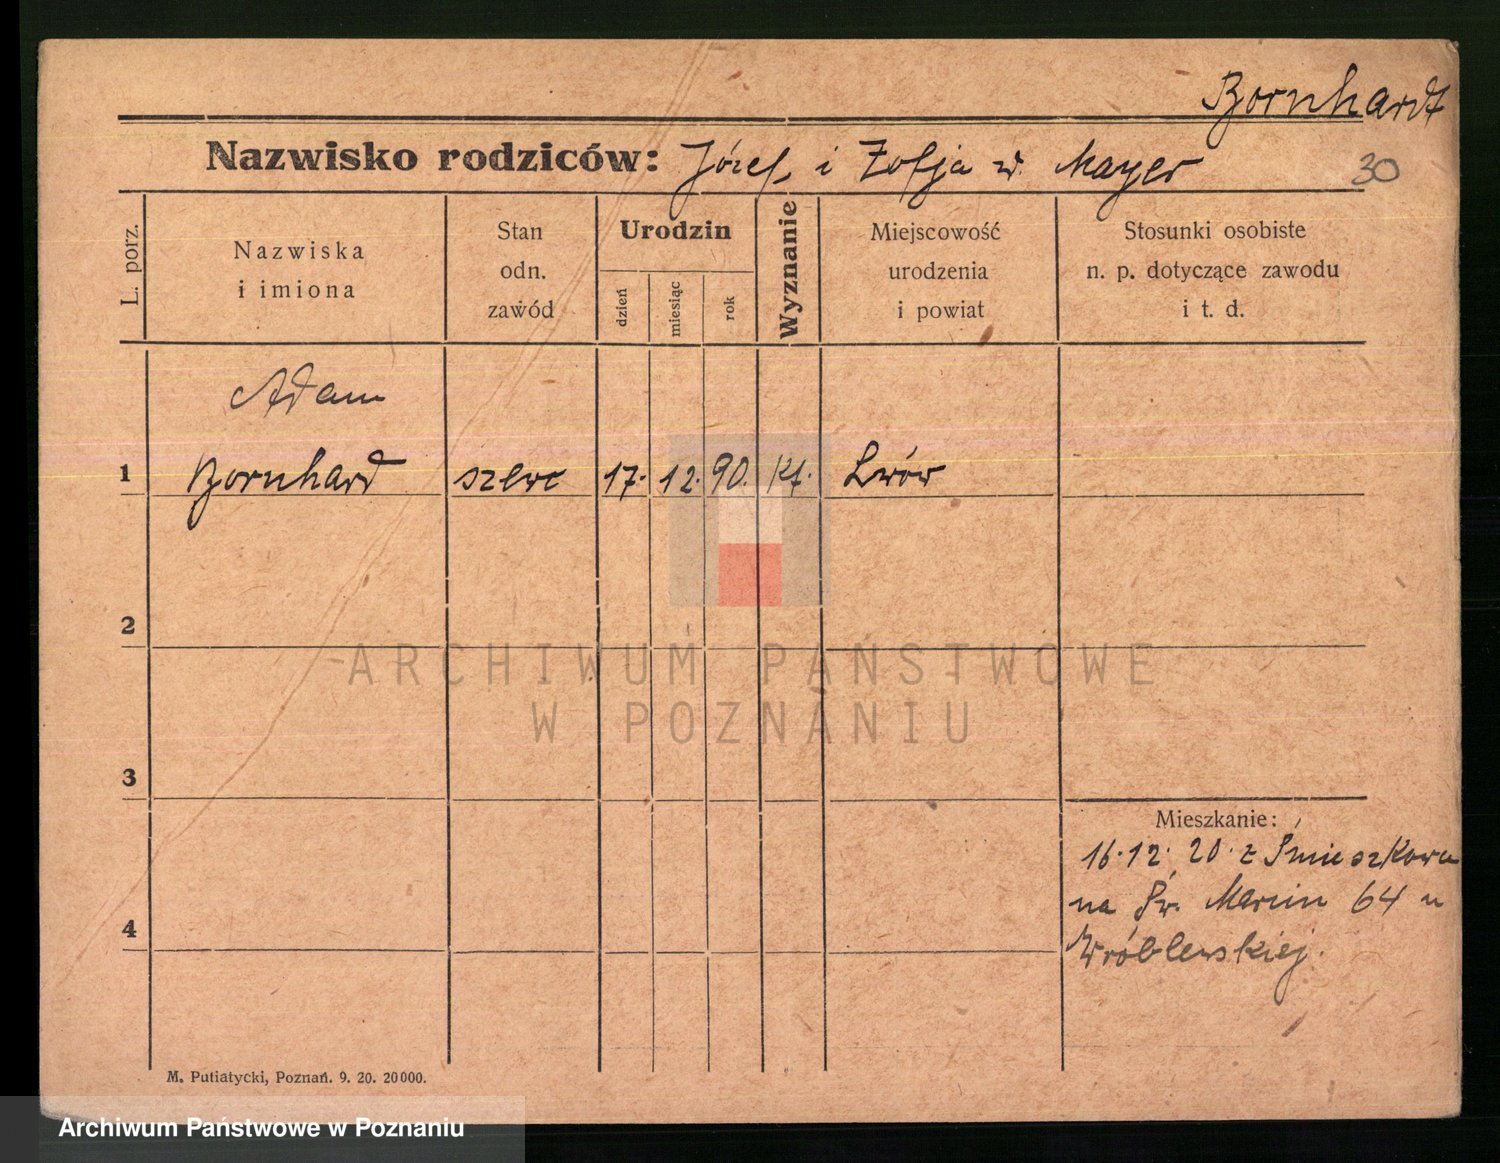 Bornhardt
Nazwisko rodziców: Józef i Zofja w. Mayer
30
L. porz.
Nazwiska
i imiona
Stan
odn.
zawód
Urodzin
dzień
miesiąc
rok
Wyznanie
Miejscowość
urodzenia
i powiat
Stosunki osobiste
n. p. dotyczące zawodu
i t. d.
Adam
1 Bornhard szewc 17. 12. 90. kt. Lwów
2
3
Mieszkanie:
16.12. 20. z
na Św. Marcin 64 u
4
Wróblewskiej.
M. Putiatycki, Poznań. 9. 20. 20000.
ARCHIWUM PAŃSTWOWE
W POZNANIU
Archiwum Państwowe w Poznaniu